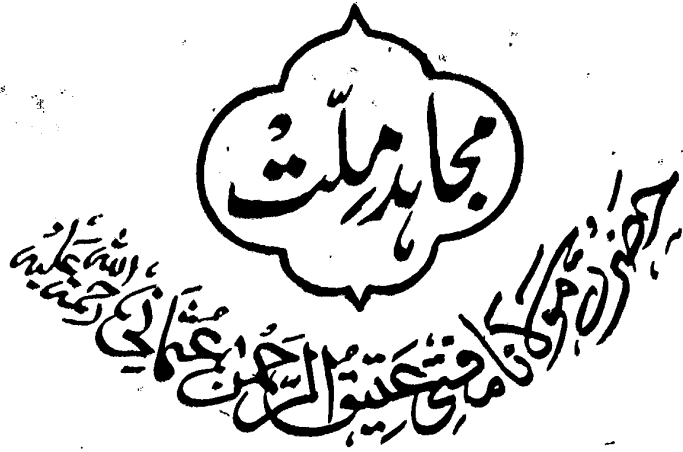 مجاہدِ ملّتؒ
حضرت مولانا مفتی عتیق الرحمٰن عثمانی رحمۃ اللہ علیہ